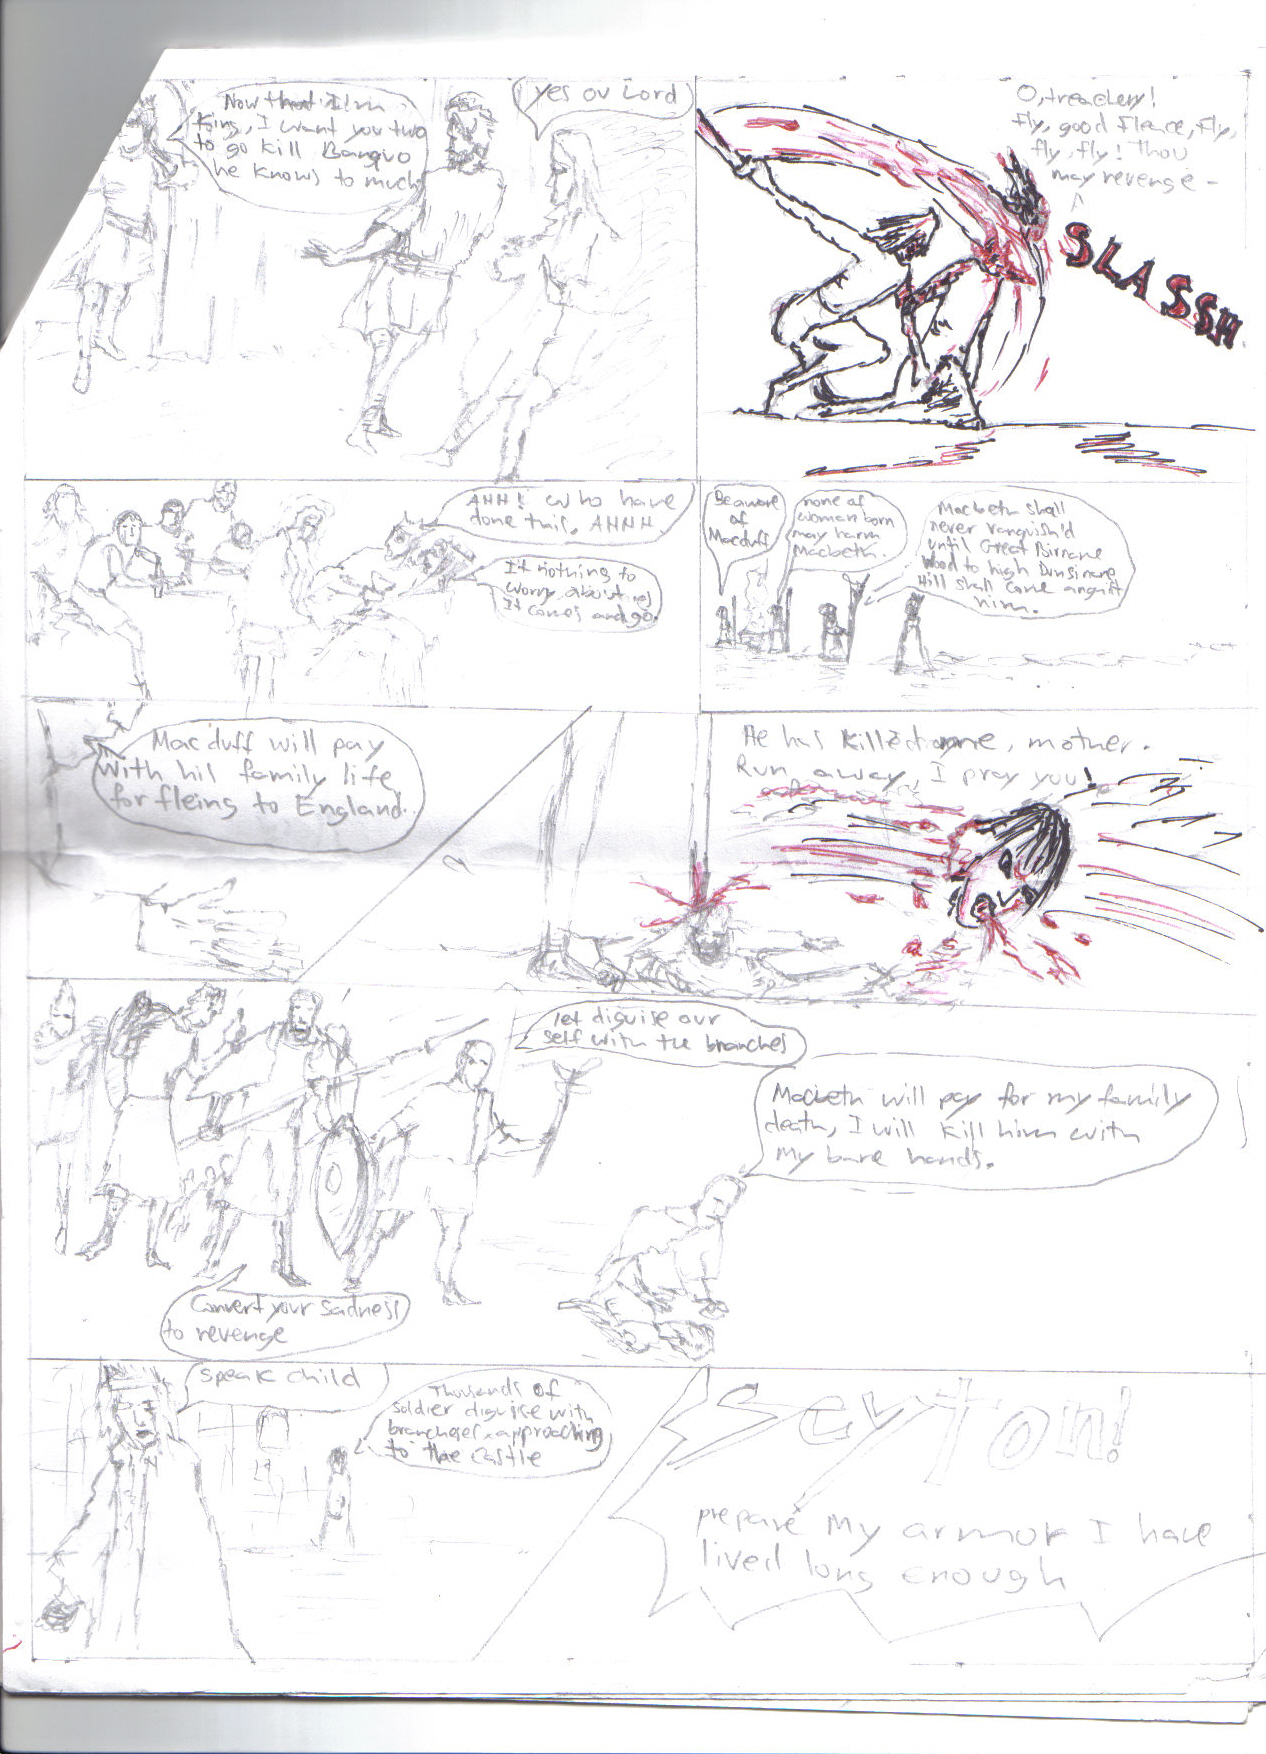 Now that I'm
King, I want you two
to go kill Banquo
he knows to much
yes ov Lord
O, treachery!
Fly, good Fleance, fly,
fly, fly! Thou
may revenge -
SLASSH
AHH! Who have
done this, AHHH
It nothing to
worry about
It comes and go.
Beaware
of
Macduff
none of
woman born
may harm
Macbeth.
Macbeth shall
never vanquish'd
until Great Birnane
Wood to high Dunsinane
Hill shall come
him.
Macduff will pay
with his family life
for fleing to England.
He has killed me, mother.
Run away, I pray you!
let diguise our
self with the branches
Macbeth will pay for my family
death, I will kill him with
my bare hands.
Convert your sadness
to revenge
speak child
Thousands of
soldier diguise with
approaching
to the castle
Seyton!
prepare my armor I have
lived long enough